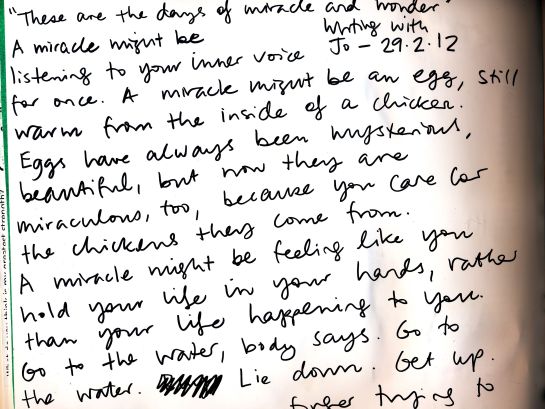 "These are the days of miracle and wonder"
A miracle might be
Writing with
Jo - 29.2.12
listening to your inner voice
for once. A miracle might be an egg, still
warm from the inside of a chicken.
Eggs have always been mysterious,
beautiful, but now they are
miraculous, too, because you care for
the chickens they come from.
A miracle might be feeling like you
hold your life in your hands, rather
than your life happening to you.
Go to the water, body says. Go to
the water. Lie down. Get up.
trying to